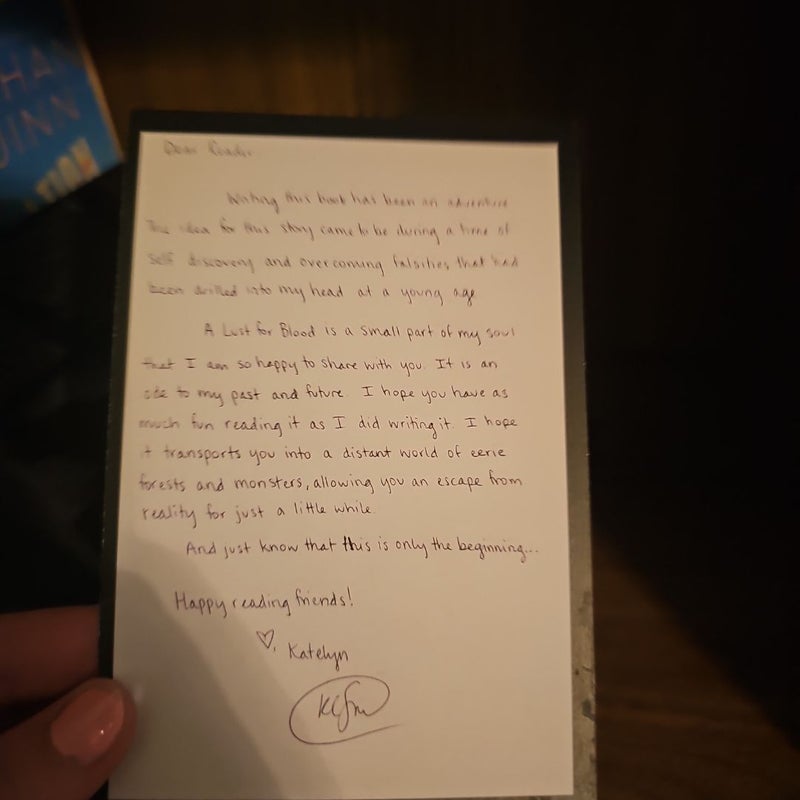 HAN
UINN
TION
Dear Reader,
Writing this book has been an adventure
The idea for this story came to be during a time of
self discovery and overcoming falsities that had
been drilled into my head at a young age
A Lust for Blood is a small part of my soul
that I am so happy to share with you. It is an
ode to my past and future. I hope you have as
much fun reading it as I did writing it. I hope
it transports you into a distant world of eerie
forests and monsters, allowing you an escape from
reality for just a little while.
And just know that this is only the beginning...
Happy reading friends!
♡, Katelyn